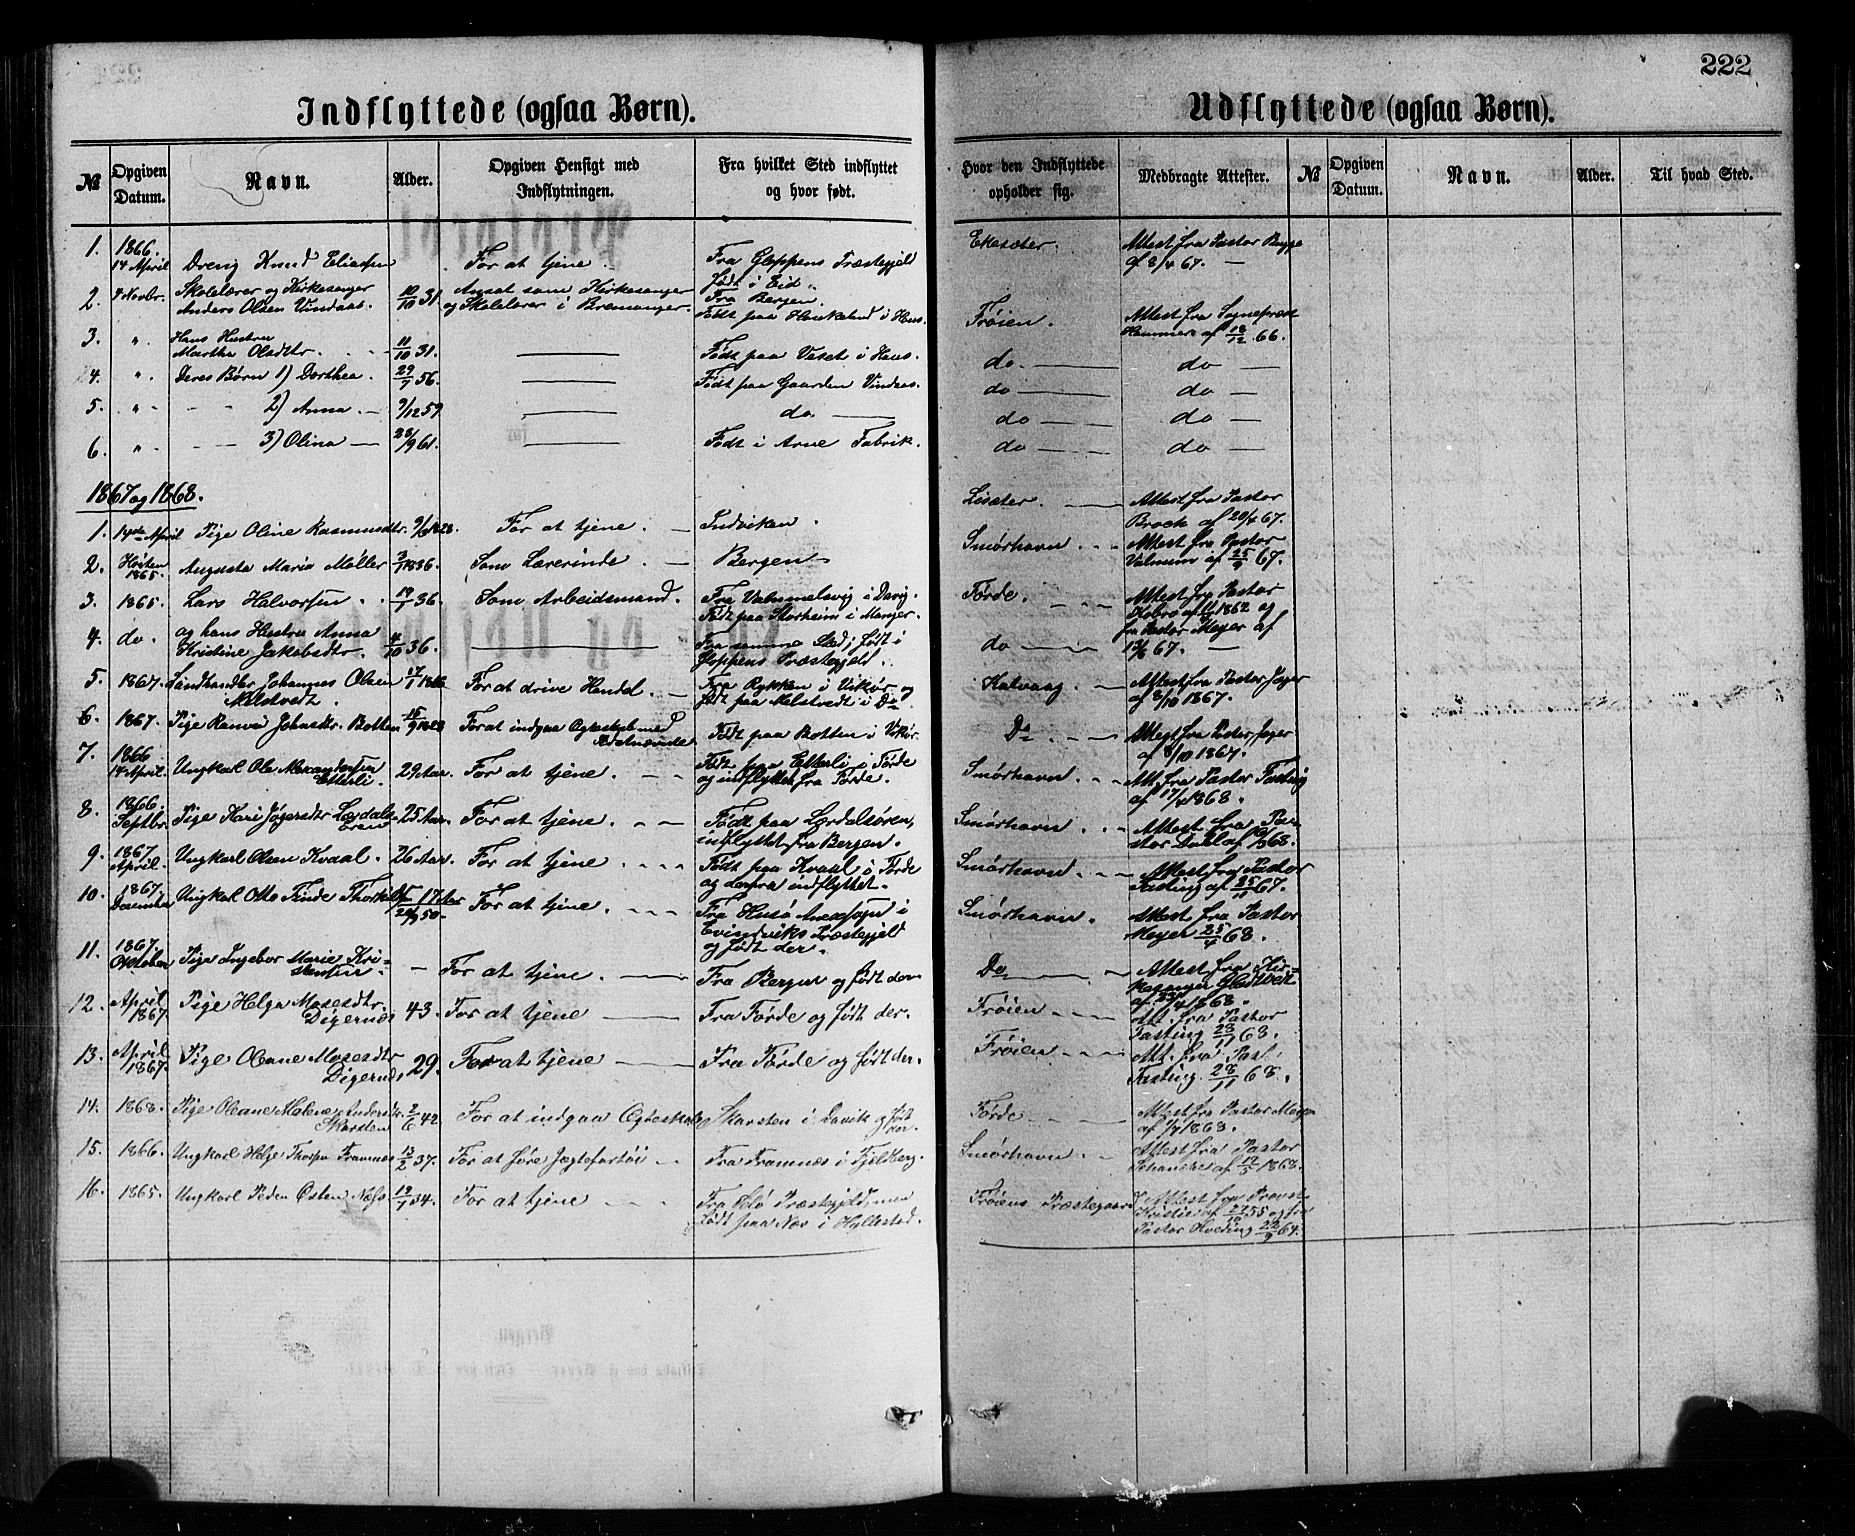 222
Indflyttede (ogsaa Børn).
Udflyttede (ogsaa Børn).
№ Opgiven Datum. Navn. Alder. Opgiven Hensigt med Indflytningen. Fra hvilket Sted indflyttet og hvor født. Hvor den Indflyttede opholder sig. Medbragte Attester. № Opgiven Datum. Navn. Alder. Til hvad Sted.
1. 1866. 14 April Dreng Knud Eliassen For at tjene. Fra Gloppens Præstegjeld Født i Eid. Ekesæter. Attest fra Pastor Bugge af 8/4 67. —
2. Novbr. Skolelærer og Kirkesanger Anders Olsen Vindaas. 10/10 31. Ansat som Kirkesanger og Skolelærer i Bremanger. Fra Bergen. Født paa Haukeland i Haus. Frøien. Attest fra Sognepræst Hammer af 18/12 66.
3. " Hans Hustru Martha Olsdtr. 11/10 31. —— Født paa Vaset i Haus. do. —— do —
4. " Deres Børn 1) Dorthea. 29/7 56. —— Født paa Gaarden Vindaas. do —— do —
5. " - - 2) Anna. — 9/12 59. —— do. —— do —— do —
6. " - - 3) Olina — 28/9 61. —— Født i Arne Fabrik. do —— do —
1867 og 1868.
1. 14de April Pige Oline Rasmusdtr. For at tjene. — Indviken. Lisæter. — Attest fra Pastor Brock af 20/4 67.
2. Høsten 1865. Augusta Maria Møller Som Lærerinde. — Bergen Smørhavn. Attest fra Pastor af 25/9 67.
3. 1865. Lars Halvorsen 36. Som Arbeidsmand. Fra i Davig. Født paa Storheim i Manger. Førde. Attest fra Pastor 1862 og fra Pastor Meyer af 67. —
4. do. og hans Hustru Anna Kristine Jakobsdtr. 4/10 36. —— Fra samme Sted; født i Gloppens Præstegjeld. do —
5. 1867. Landhandler Johannes Olsen For at drive Handel. — Fra Rykken i Vikør og født paa i Do. Kalvaag. — Attest fra Pastor Jæger af 8/10 1867.
6. 1867. Pige Johansdtr. Botten For at indgaa Ægteskab med Født paa Botten i Vikør. Do. — Attest fra Pastor Jæger af 8/10 1867.
7. 1866 14 April. Ungkarl Ole Alexandersen Etterli. 29 Aar. For at tjene. — — Født paa Etterli i Førde og indflyttet fra Førde. Smørhavn. Att. fra Pastor Fasting af 17/4 1868.
8. 1866. Septbr. Pige Kari Lærdalsøren 25 Aar. For at tjene. — — Født paa Lærdalsøren, indflyttet fra Bergen. Smørhavn Attest fra Pastor Dahl af 68.
9. 1867. April. Ungkarl Olsen Kvaal. 26 Aar. For at tjene. Født paa Kvaal i Førde og derfra indflyttet. Smørhavn. Attest fra Pastor Fasting af 25/11 67.
10. 1867. Ungkarl Otto 17 Aar For at tjene. Fra Husø Annexsogn i Evindviks Præstegjeld og født der. Smørhavn. Attest fra Pastor Meyer 25/4 68.
11. 1867. Oktober Pige Ingebor Marie Kristensen. — For at tjene. — Fra Bergen og født der Do — Attest fra Kirkesanger af 1868.
12. April 1867. Pige Helga Mosesdtr. Digernes 43. For at tjene — Fra Førde og født der. Frøien — Att. fra Pastor Fasting 28/11 68.
13. April 1867. Pige Oleane Mosesdtr Digernes 29. For at tjene — Fra Førde og født der. Frøien Att. fra Past. Fasting. 28/11 68.
14. 1868. Pige Oleane Malene Andersdtr. Skarsten 2/6 42 For at indgaa Ægteskab. Skarsten i Davik og født der. Førde — Attest fra Pastor Meyer af 1868.
15. 1866. Ungkarl Helge Framnes 13/2 37. For at føre Jægtefartøi — Fra Framnæs i Fjeldberg. Smørhavn. — Attest fra Pastor af 12/5 1868.
16. 1865. Ungkarl Peder Østen Næs. 34. For at tjene Præstegjeld, men født paa Næs i Hyllestad. Frøiens Præstegaard Attest fra Provst 55 og fra Pastor 22/9 67.